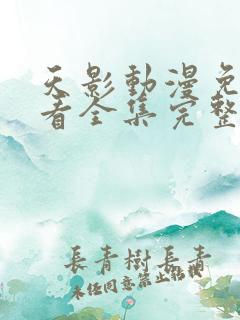 天影動漫免
看全集完整
長青樹長青
未経同意禁止転載